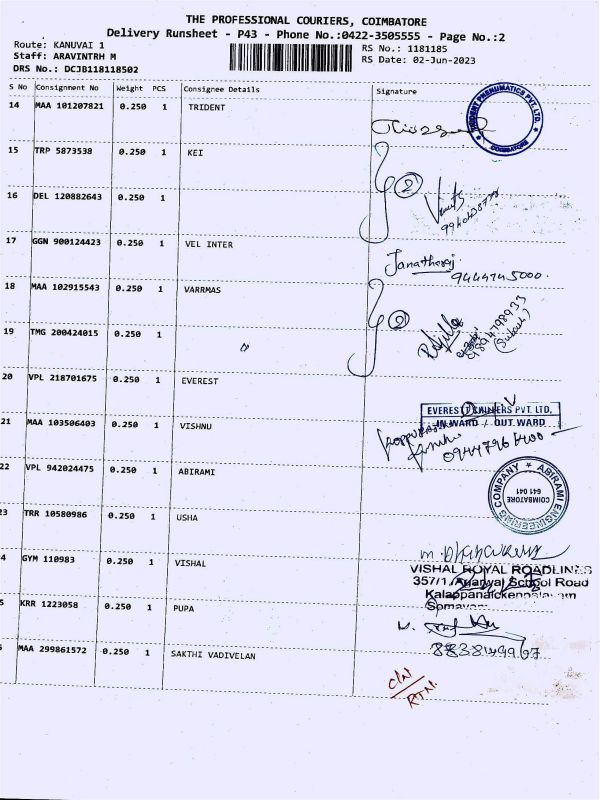 THE PROFESSIONAL COURIERS, COIMBATORE
Delivery Runsheet - P43 - Phone No.:0422-3505555 - Page No.:2
Route: KANUVAI 1
Staff: ARAVINTRH M
DRS No.: DCJB118118502
RS No.: 1181185
RS Date: 02-Jun-2023
S No Consignment No Weight PCS Consignee Details Signature
14 MAA 101207821 0.250 1 TRIDENT
TRIDENT PNEUMATICS PVT. LTD. COIMBATORE
15 TRP 5873538 0.250 1 KEI
16 DEL 120882643 0.250 1
2
17 GGN 900124423 0.250 1 VEL INTER
Janatharaj
9444745000
18 MAA 102915543 0.250 1 VARRMAS
19 TMG 200424015 0.250 1
20 VPL 218701675 0.250 1 EVEREST
EVEREST CHILLERS PVT. LTD,
IN WARD / OUT WARD
21 MAA 103506403 0.250 1 VISHNU
22 VPL 942024475 0.250 1 ABIRAMI
ABIRAMI ENGINEERING COMPANY
COIMBATORE
641 041
23 TRR 10580986 0.250 1 USHA
4 GYM 110983 0.250 1 VISHAL
VISHAL ROYAL ROADLINES
357/1, Agarwal School Road
Kalappanaickenpalayam
Somayam
5 KRR 1223058 0.250 1 PUPA
MAA 299861572 0.250 1 SAKTHI VADIVELAN
C/N
RTN